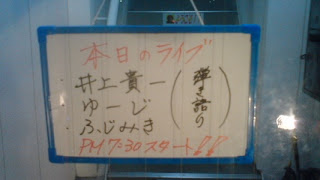 本日のライブ
井上貴一
ゆーじ
ふじみき
(弾き語り)
PM7:30スタート!!